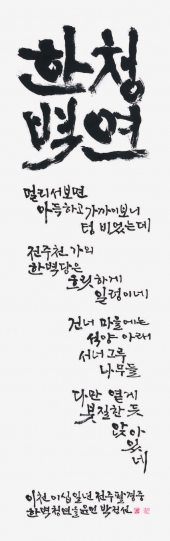 한벽청연
멀리서보면
아득하고 가까이보니
텅 비었는데
전주천 가의
한벽당은
호릿하게
일렁이네
건너 마을에는
석양 아래
서너그루
나무들
다만 옅게
붓질한 듯
앉아
있네
이천 이십일년 전주팔경중
한벽청연을 읊은